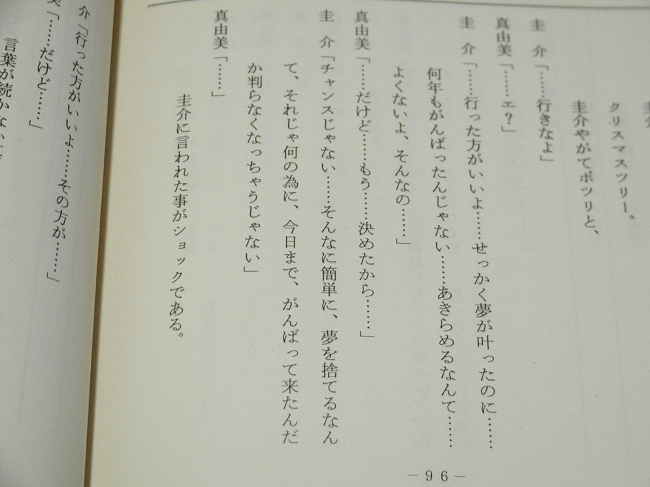 クリスマスツリー。
圭介やがてポツリと、
圭　介「……行きなよ」
真由美「……エ？」
圭　介「……行った方がいいよ……せっかく夢が叶ったのに……
何年もがんばったんじゃない……あきらめるなんて……
よくないよ、そんなの……」
真由美「……だけど……もう……決めたから……」
圭　介「チャンスじゃない……そんなに簡単に、夢を捨てるなん
て、それじゃ何の為に、今日まで、がんばって来たんだ
か判らなくなっちゃうじゃない」
真由美「……」
圭介に言われた事がショックである。
－96－
介「行った方がいいよ……その方が……」
美「……だけど……」
言葉が続かない